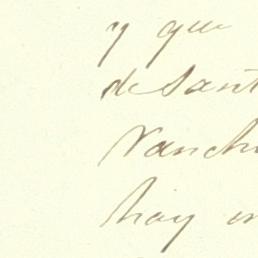 y que
de Sant
ranch
hay